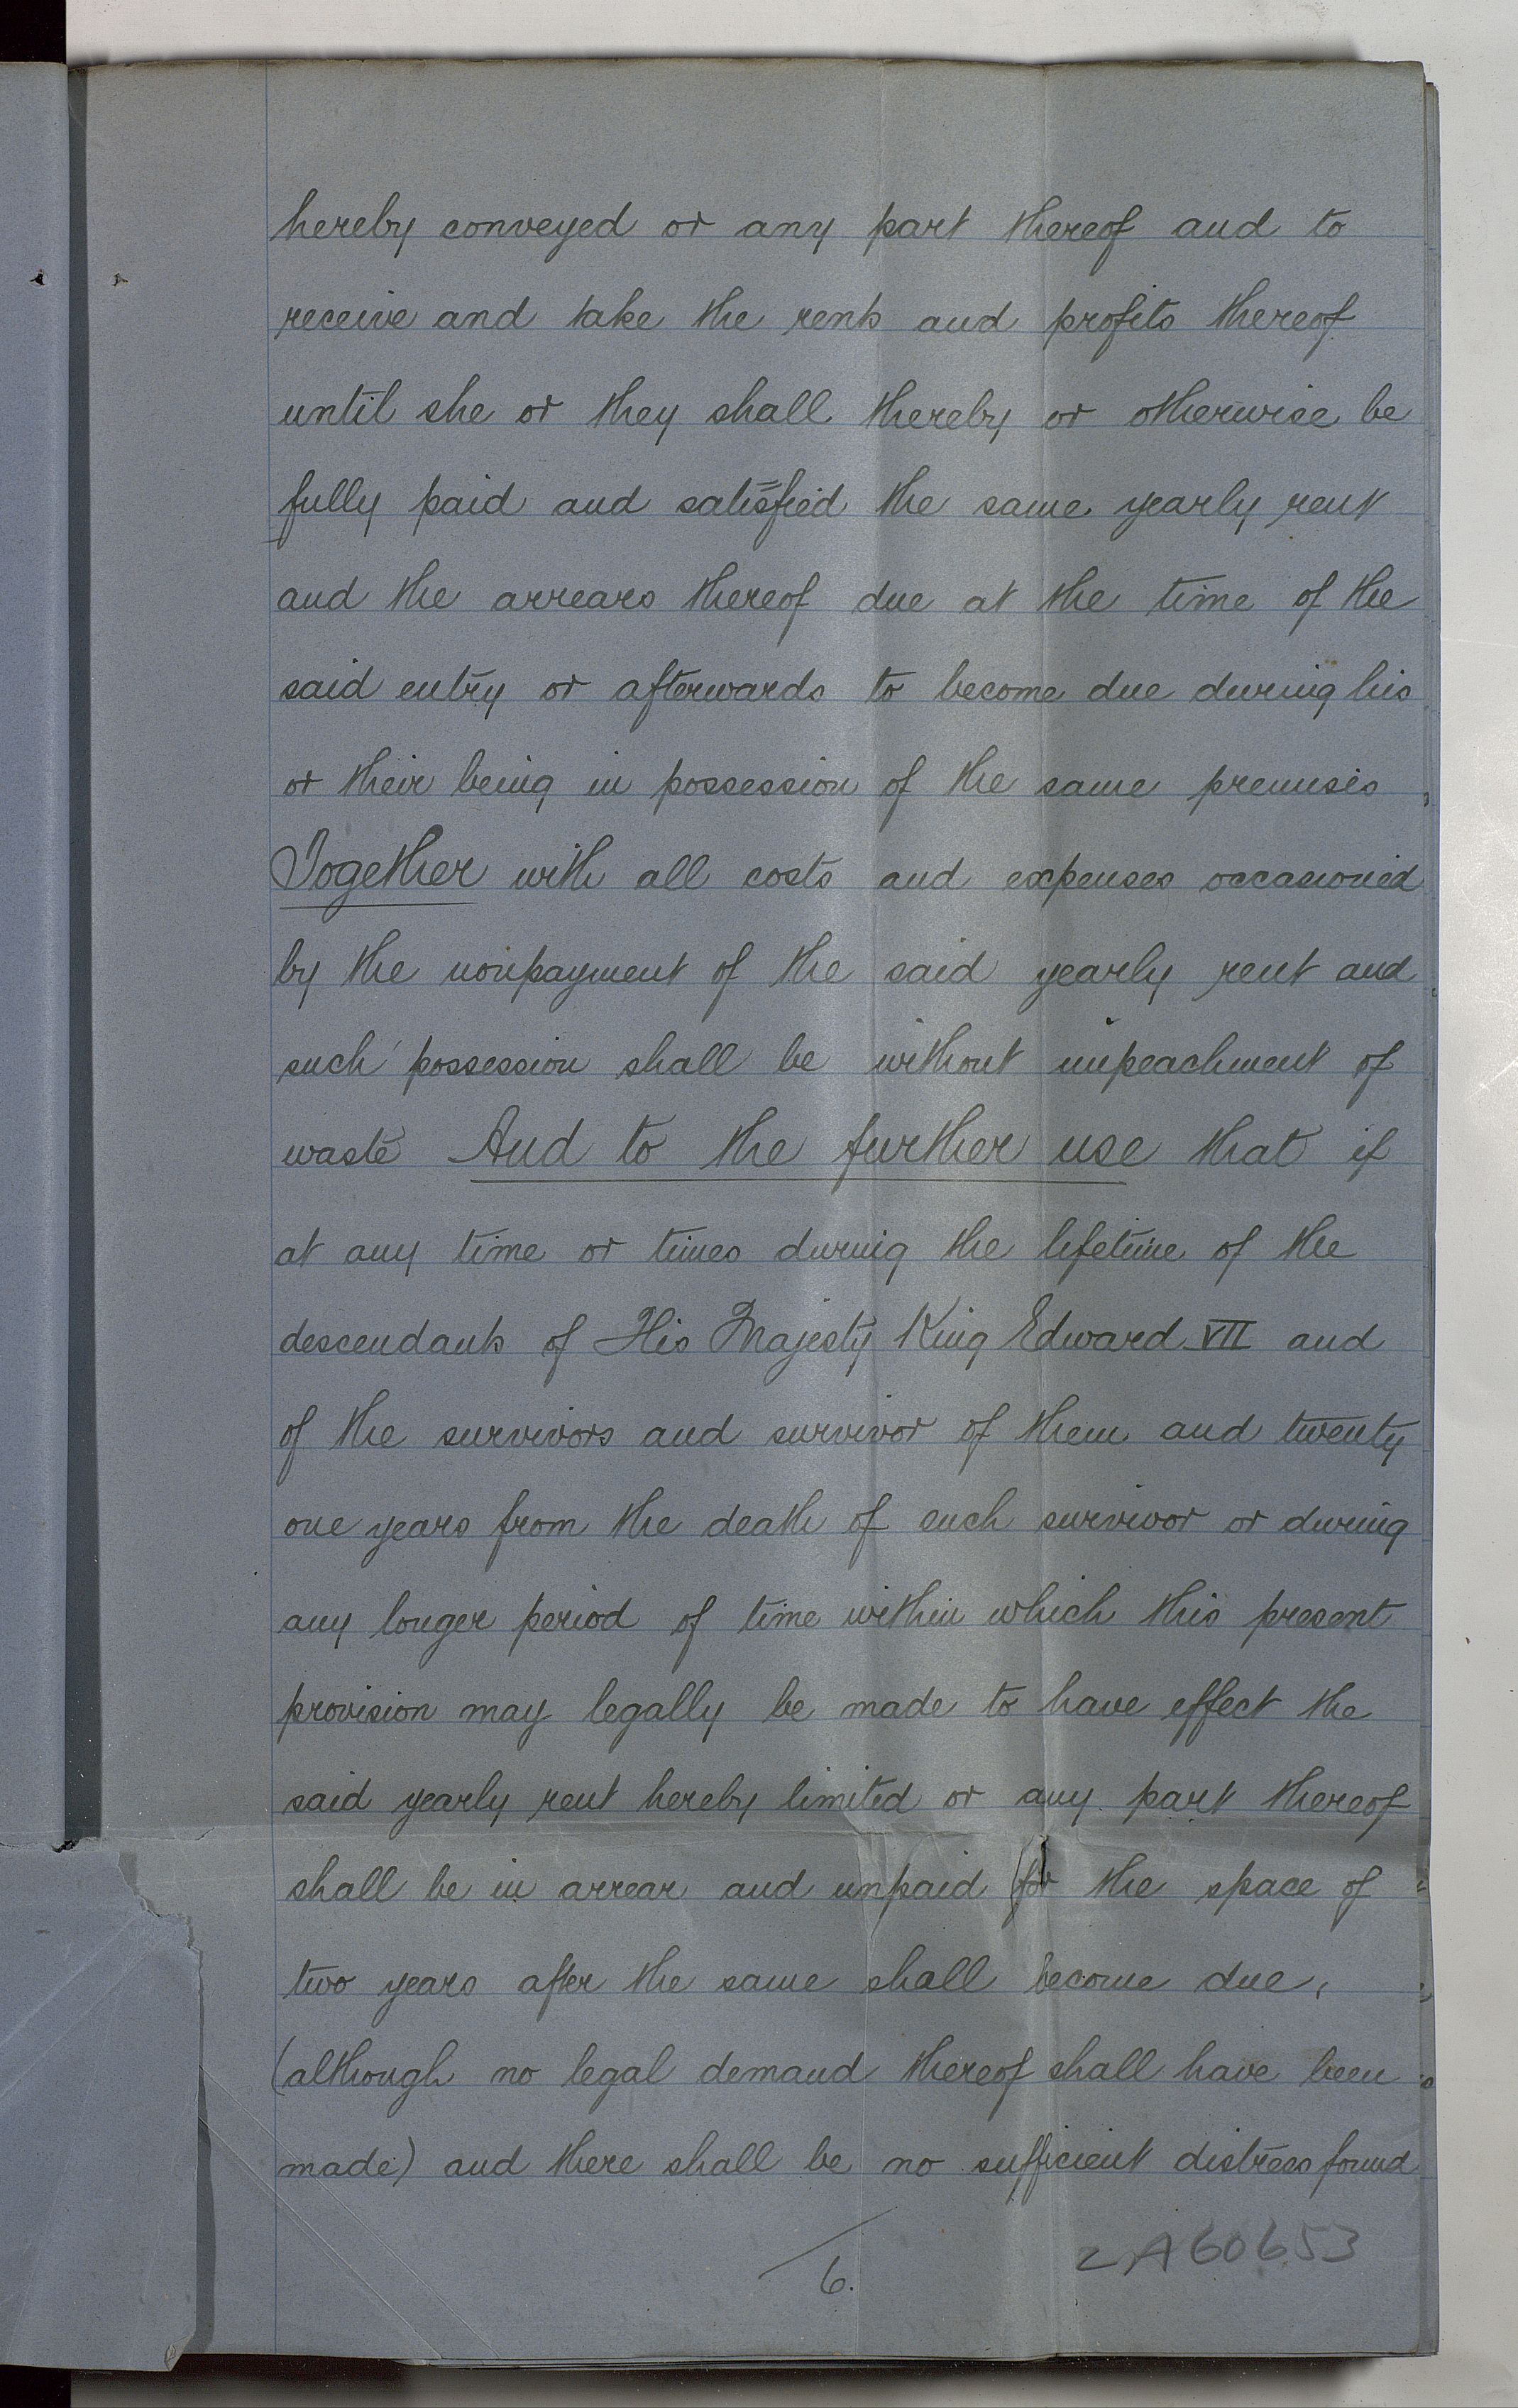 hereby conveyed or any part thereof and to
receive and take the rents and profits thereof
until she or they shall thereby or otherwise be
fully paid and satisfied the same yearly rent
and the arrears thereof due at the time of the
said entry or afterwards to become due during his
or their being in possession of the same premises
Together with all costs and expenses occasioned
by the nonpayment of the said yearly rent and
such possession shall be without impeachment of
waste And to the further use that if
at any time or times during the lifetime of the
descendants of His Majesty King Edward VII and
of the survivors and survivor of them and twenty
one years from the death of such survivor or during
any longer period of time within which this present
provision may legally be made to have effect the
said yearly rent hereby limited or any part thereof
shall be in arrear and unpaid for the space of
two years after the same shall become due,
(although no legal demand thereof shall have been
made) and there shall be no sufficient distress found
6.
LA60653